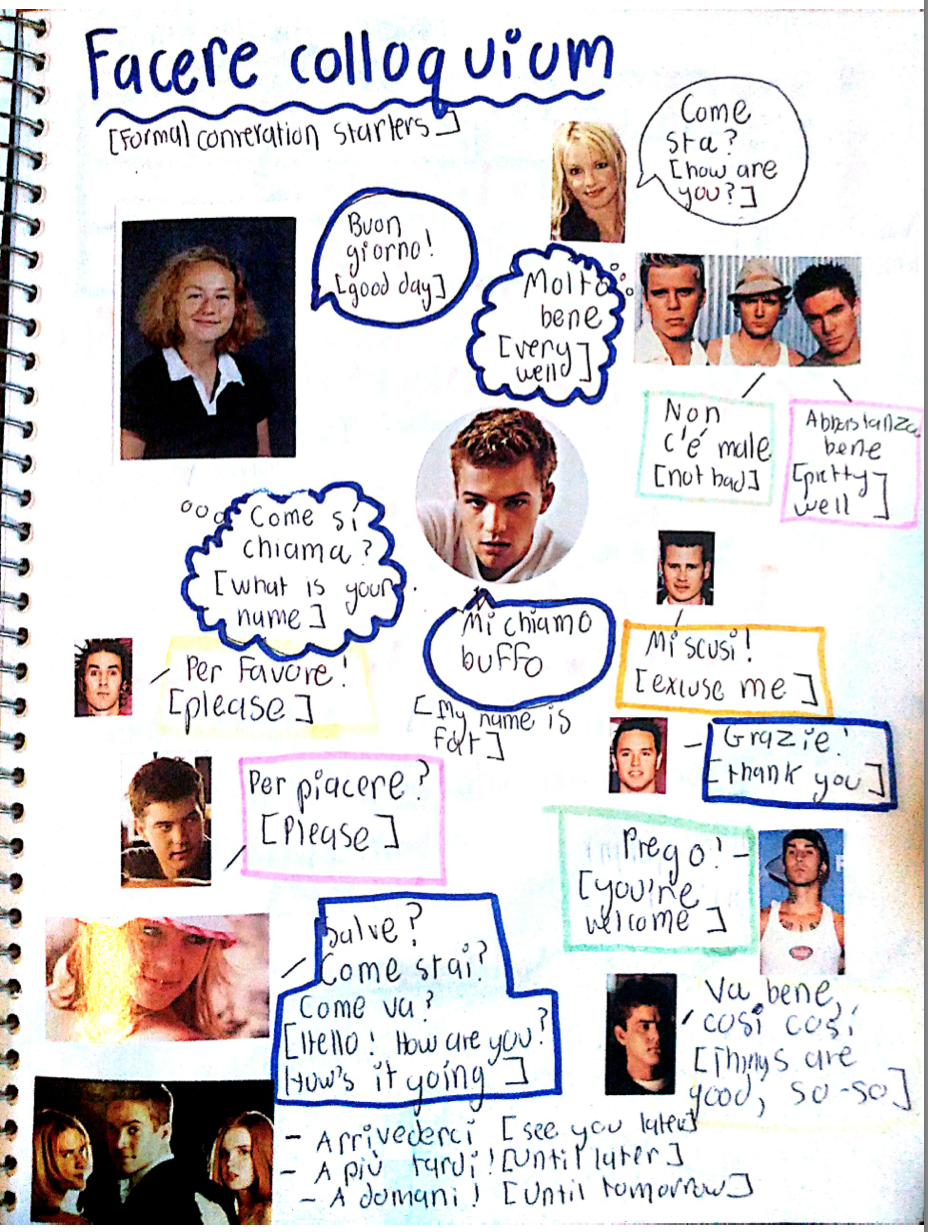 Facere colloquium
[Formal converation starters]
Come
sta?
[how are
you?]
Buon
giorno!
[good day]
Molto
bene
[very
well]
Non
c'é male
[not bad]
Abbastanza
bene
[pretty
well]
Come si
chiama?
[what is your
name]
Mi chiamo
buffo
[My name is
Mi scusi!
[excuse me]
Per Favore!
[please]
Grazie!
[thank you]
Per piacere?
[Please]
Prego!
[you're
welcome]
Salve?
Come stai?
Come va?
[Hello! How are you?
How's it going]
Va bene,
cosí cosí
[Things are
good, so-so]
- Arrivederci [see you later]
- A più tardi! [Until later]
- A domani! [Until tomorrow]